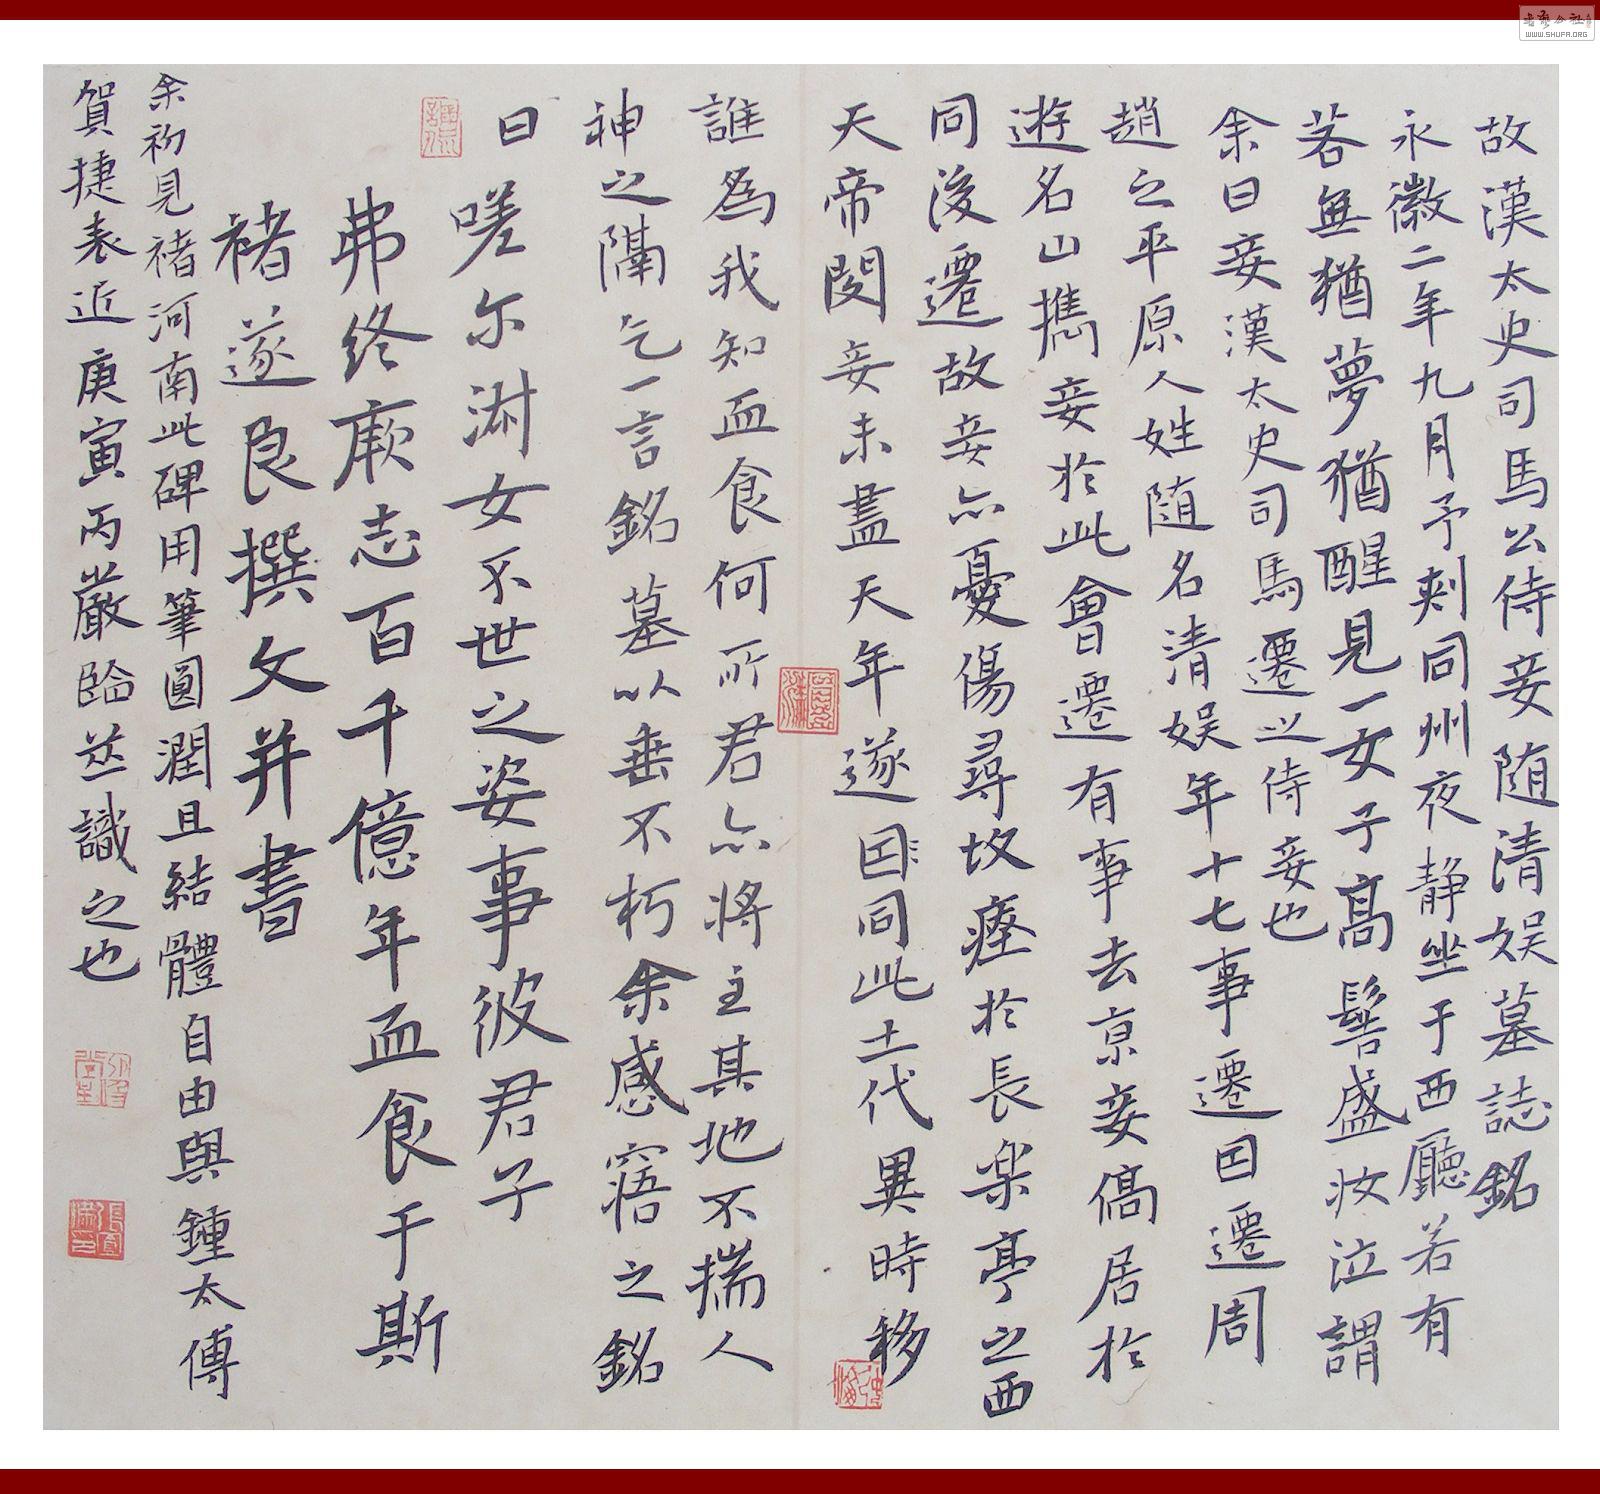 故漢太史司馬公侍妾随清娱墓誌銘
永徽二年九月予刺同州夜静坐于西廳若有
若無猶夢猶醒見一女子髙髻盛妝泣謂
余曰妾漢太史司馬遷之侍妾也
趙之平原人姓随名清娱年十七事遷因遷周
遊名山攜妾於此會遷有事去京妾僑居於
同後遷故妾亦憂傷尋故瘞於長樂亭之西
天帝閔妾未盡天年遂因同此土代異時移
誰為我知血食何所君亦將主其地不揣人
神之隔乞一言銘墓以垂不朽余感寤之銘
曰嗟尔淑女不世之姿事彼君子
弗終厥志百千億年血食于斯
褚遂良撰文并書
余初見褚河南此碑用筆圓潤且結體自由與鍾太傅
賀捷表近庚寅丙嚴臨並識之也
WWW.SHUFA.ORG